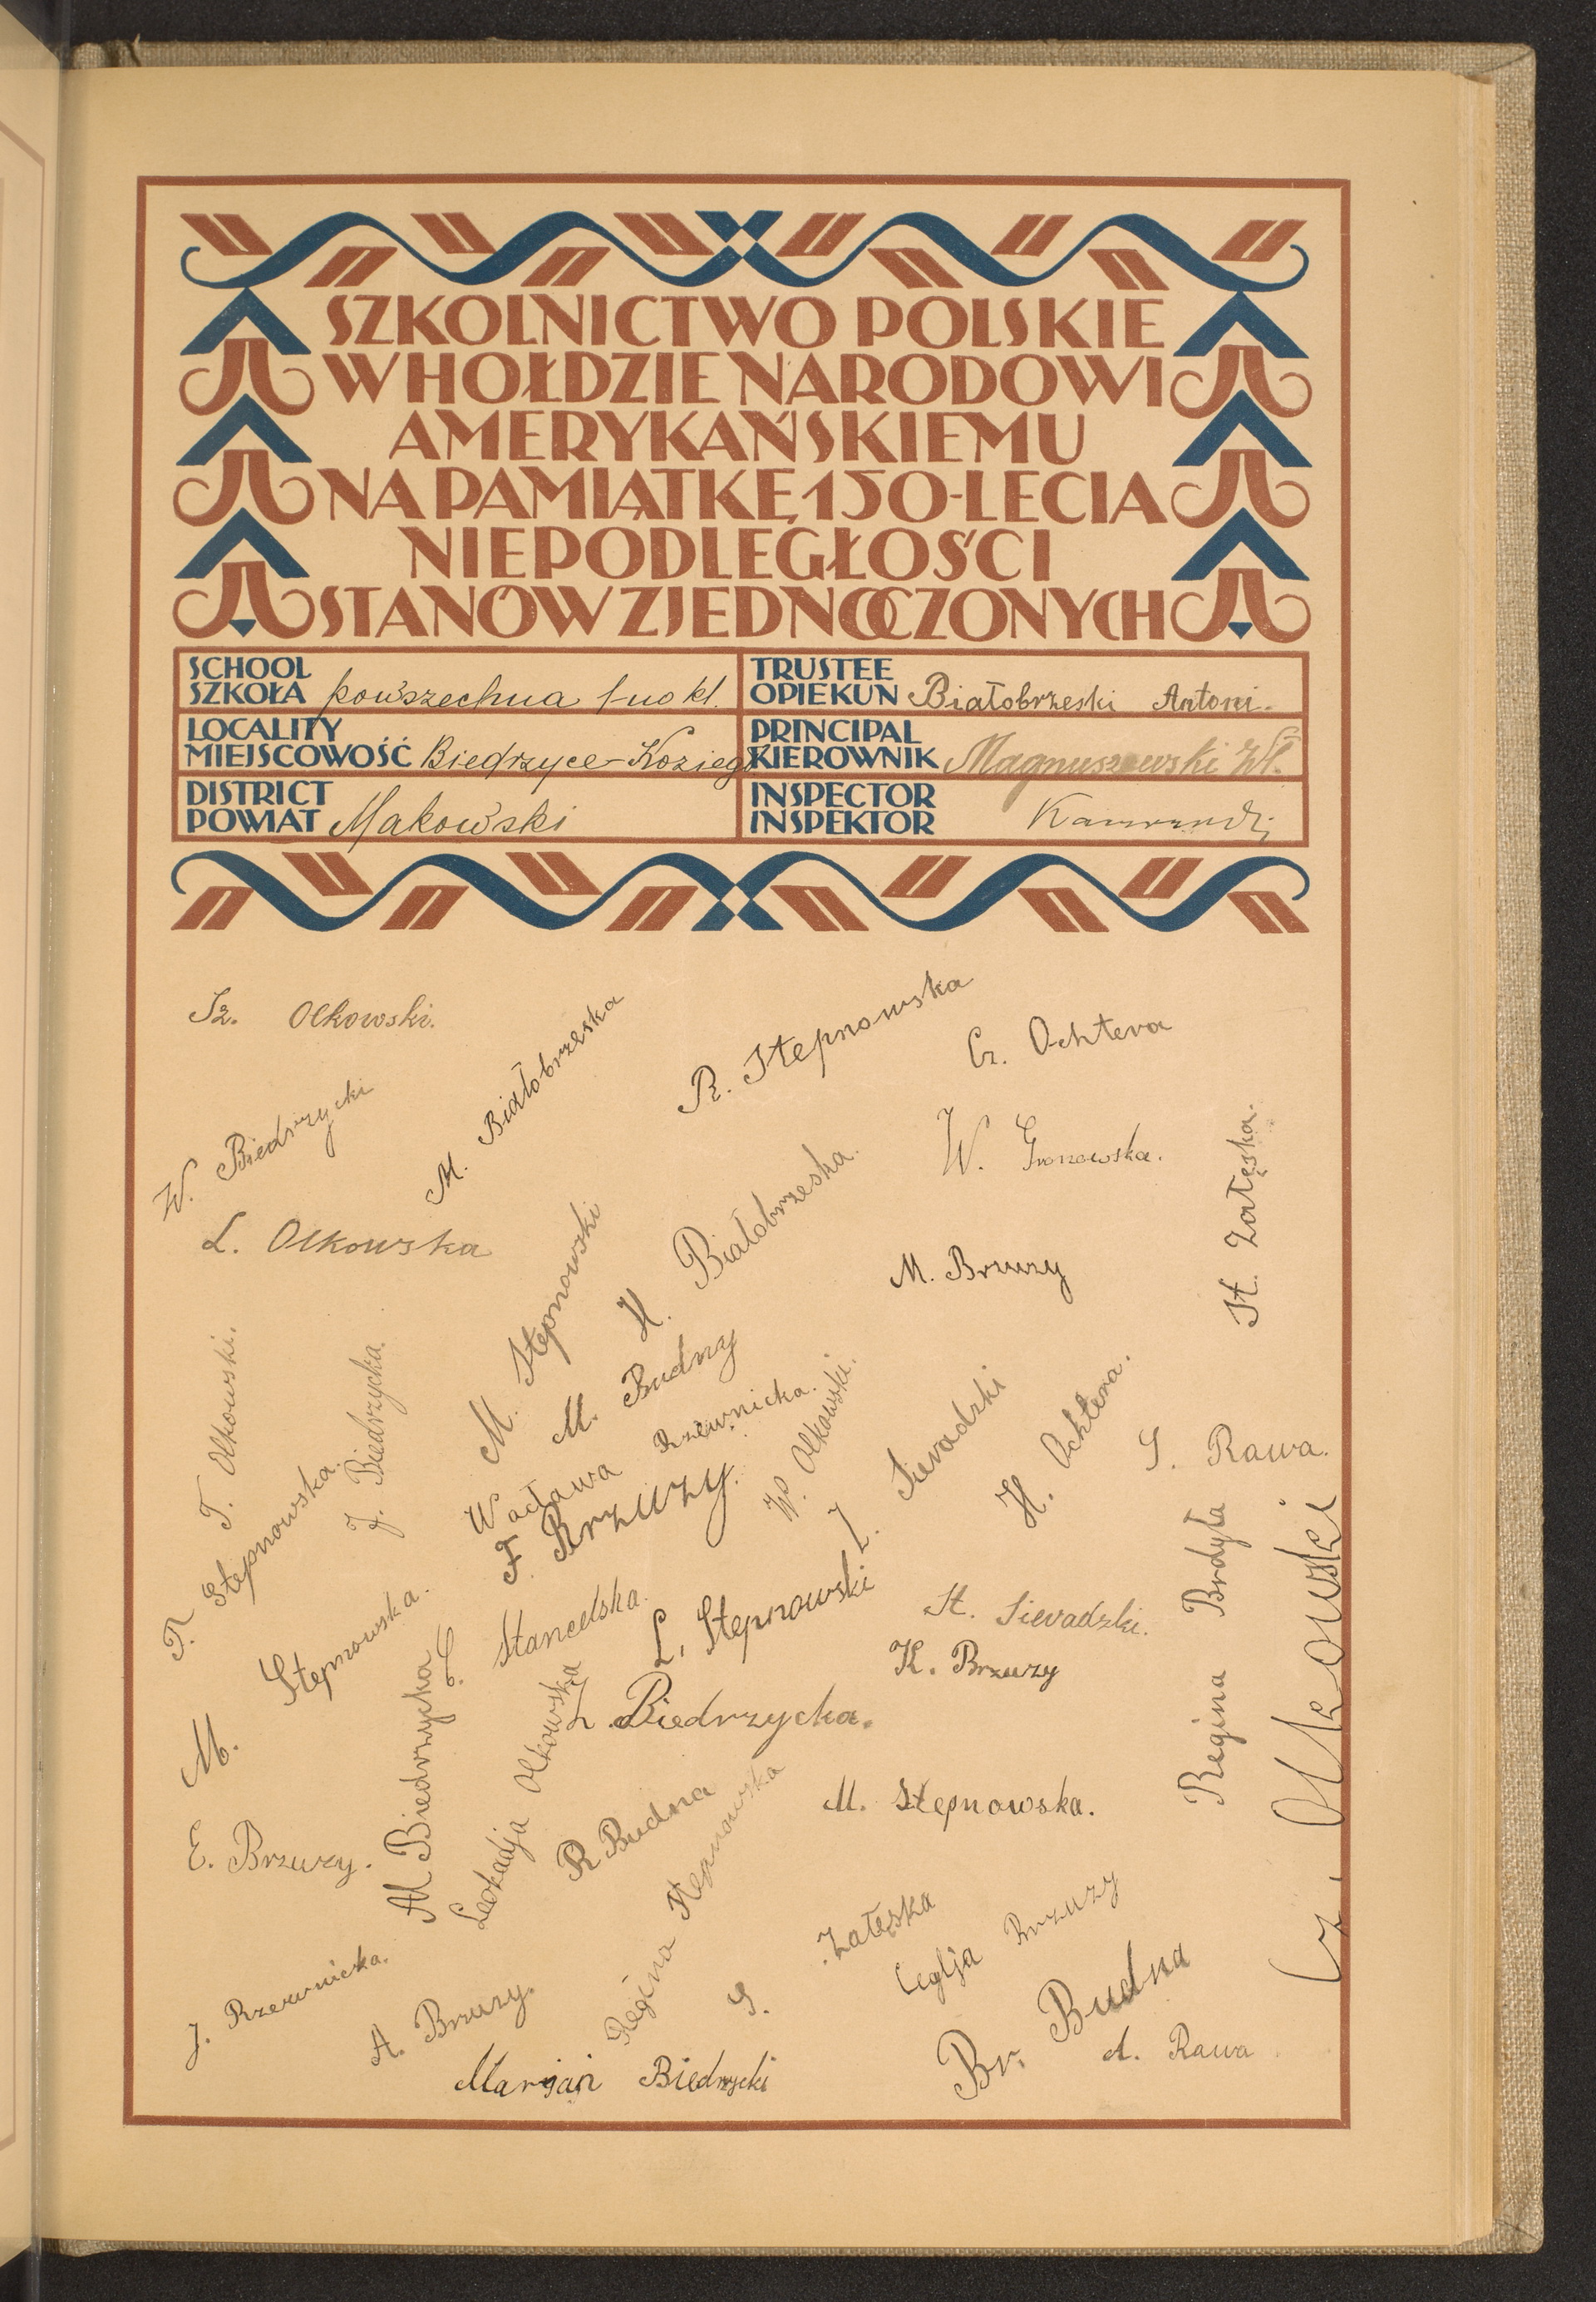 SZKOLNICTWO POLSKIE
W HOŁDZIE NARODOWI
AMERYKAŃSKIEMU
NA PAMIĄTKĘ 150-LECIA
NIEPODLEGŁOŚCI
STANÓW ZJEDNOCZONYCH
SCHOOL
SZKOŁA powszechna 1-no kl.
TRUSTEE
OPIEKUN Białobrzeski Antoni.
LOCALITY
MIEJSCOWOŚĆ Biedrzyce-Koziegł
PRINCIPAL
KIEROWNIK Magnuszewski Wł.
DISTRICT
POWIAT Makowski
INSPECTOR
INSPEKTOR
Sz. Olkowski.
M. Białobrzeska
R. Stepnowska
Cz. Ochtera
W. Biedrzycki
L. Olkowska
H. Białobrzeska.
W. Gronowska.
St. Załęska.
M. Stepnowski
M. Brzuzy
T. Olkowski.
J. Biedrzycka.
M. Budny
Wacława Rzewnicka.
W. Olkowski.
J. Sieradzki
H. Ochtera.
S. Rawa.
R. Stepnowska.
F. Brzuzy.
M. Stepnowska.
C. Stancelska.
L. Stepnowski
St. Sieradzki.
K. Brzuzy
Regina Brdyła
Cz. Olkowski
M Biedrzycka
Leokadja Olkowska
L. Biedrzycka.
E. Brzuzy.
R Budna
Regina Stepnowska
M. Stepnowska.
J. Rzewnicka.
A. Brzuzy.
S. Załęska
Ceglja Brzuzy
Br. Budna
A. Rawa
Marjan Biedrzycki